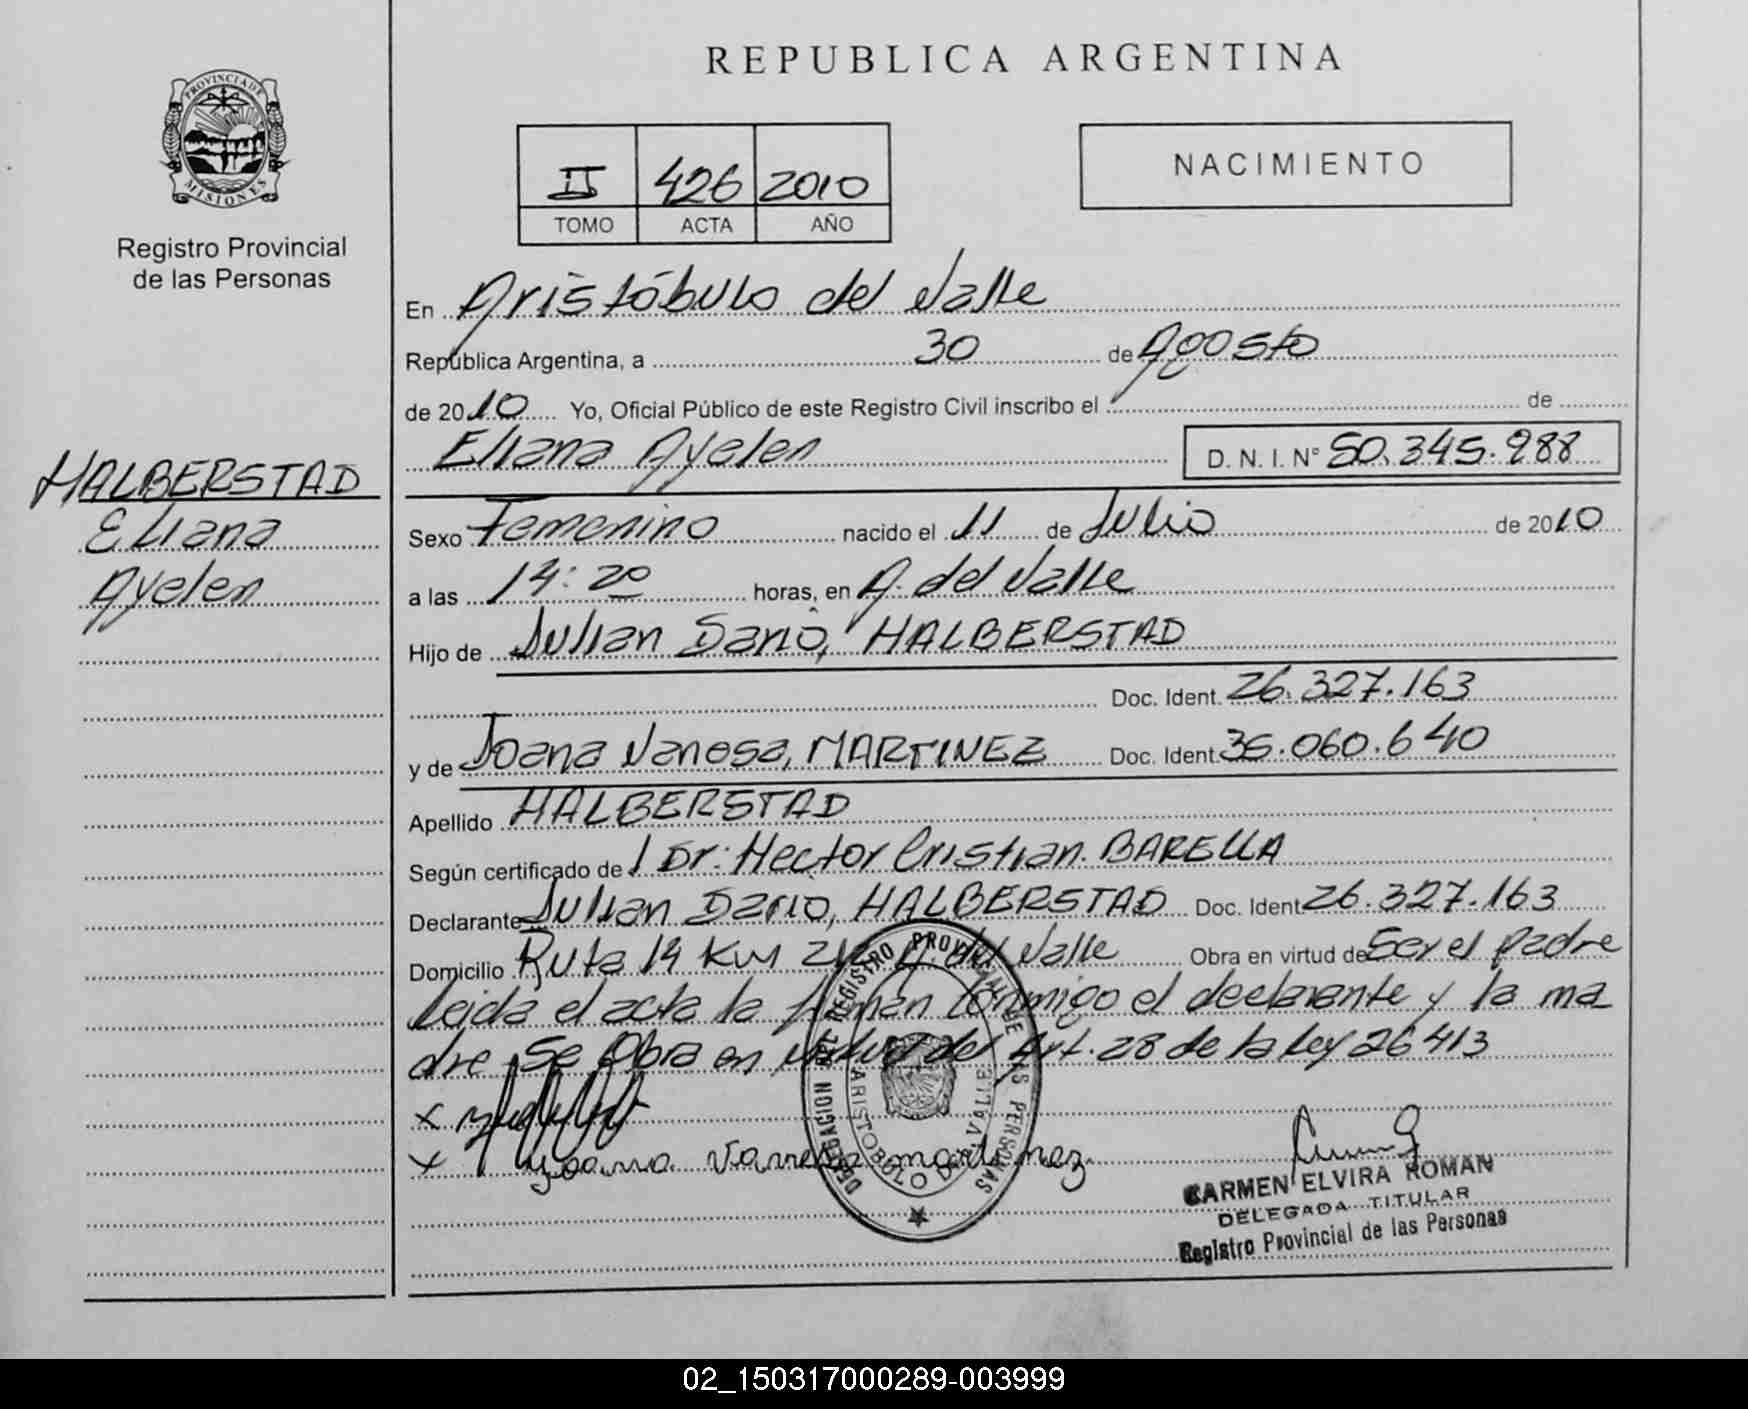 REPUBLICA ARGENTINA
PROVINCIA DE
MISIONES
Registro Provincial
de las Personas
II 426 2010
TOMO ACTA AÑO
NACIMIENTO
En Aristóbulo del Valle
República Argentina, a 30 de Agosto
de 2010 Yo, Oficial Público de este Registro Civil inscribo el de
Eliana Ayelen D. N. I. N° 50.345.288
HALBERSTAD
Eliana
Ayelen
Sexo Femenino nacido el 11 de Julio de 2010
a las 14:20 horas, en A. del Valle
Hijo de Julian Dario, HALBERSTAD
Doc. Ident. 26.327.163
y de Joana Vanesa, MARTINEZ Doc. Ident. 35.060.640
Apellido HALBERSTAD
Según certificado de l Dr: Hector Cristian. BARELLA
Declarante Julian Dario, HALBERSTAD Doc. Ident. 26.327.163
Domicilio Ruta 14 Km A. del Valle Obra en virtud de Ser el padre
Leida el acta la firman conmigo el declarante y la ma
dre Se Obra en virtud del Art. 28 de la Ley 26413
x
x Joana Vanesa martinez
DELEGACION DEL REGISTRO PROVINCIAL DE LAS PERSONAS
ARISTOBULO DEL VALLE
CARMEN ELVIRA ROMAN
DELEGADA TITULAR
Registro Provincial de las Personas
02_150317000289-003999